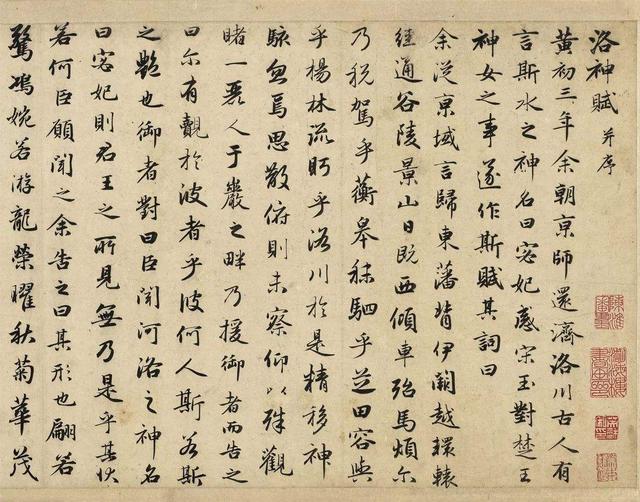 洛神賦 并序
黃初三年余朝京師還濟洛川古人有
言斯水之神名曰宓妃感宋玉對楚王
神女之事遂作斯賦其詞曰
余從京域言歸東藩背伊闕越轘轅
經通谷陵景山日既西傾車殆馬煩尔
乃稅駕乎蘅皋秣駟乎芝田容與
乎楊林流眄乎洛川於是精移神
駭忽焉思散俯則未察仰以殊觀
睹一麗人于巖之畔乃援御者而告之
曰尔有覿於彼者乎彼何人斯若斯
之艷也御者對曰臣聞河洛之神名
曰宓妃則君王之所見無乃是乎其狀
若何臣願聞之余告之曰其形也翩若
驚鴻婉若游龍榮曜秋菊華茂